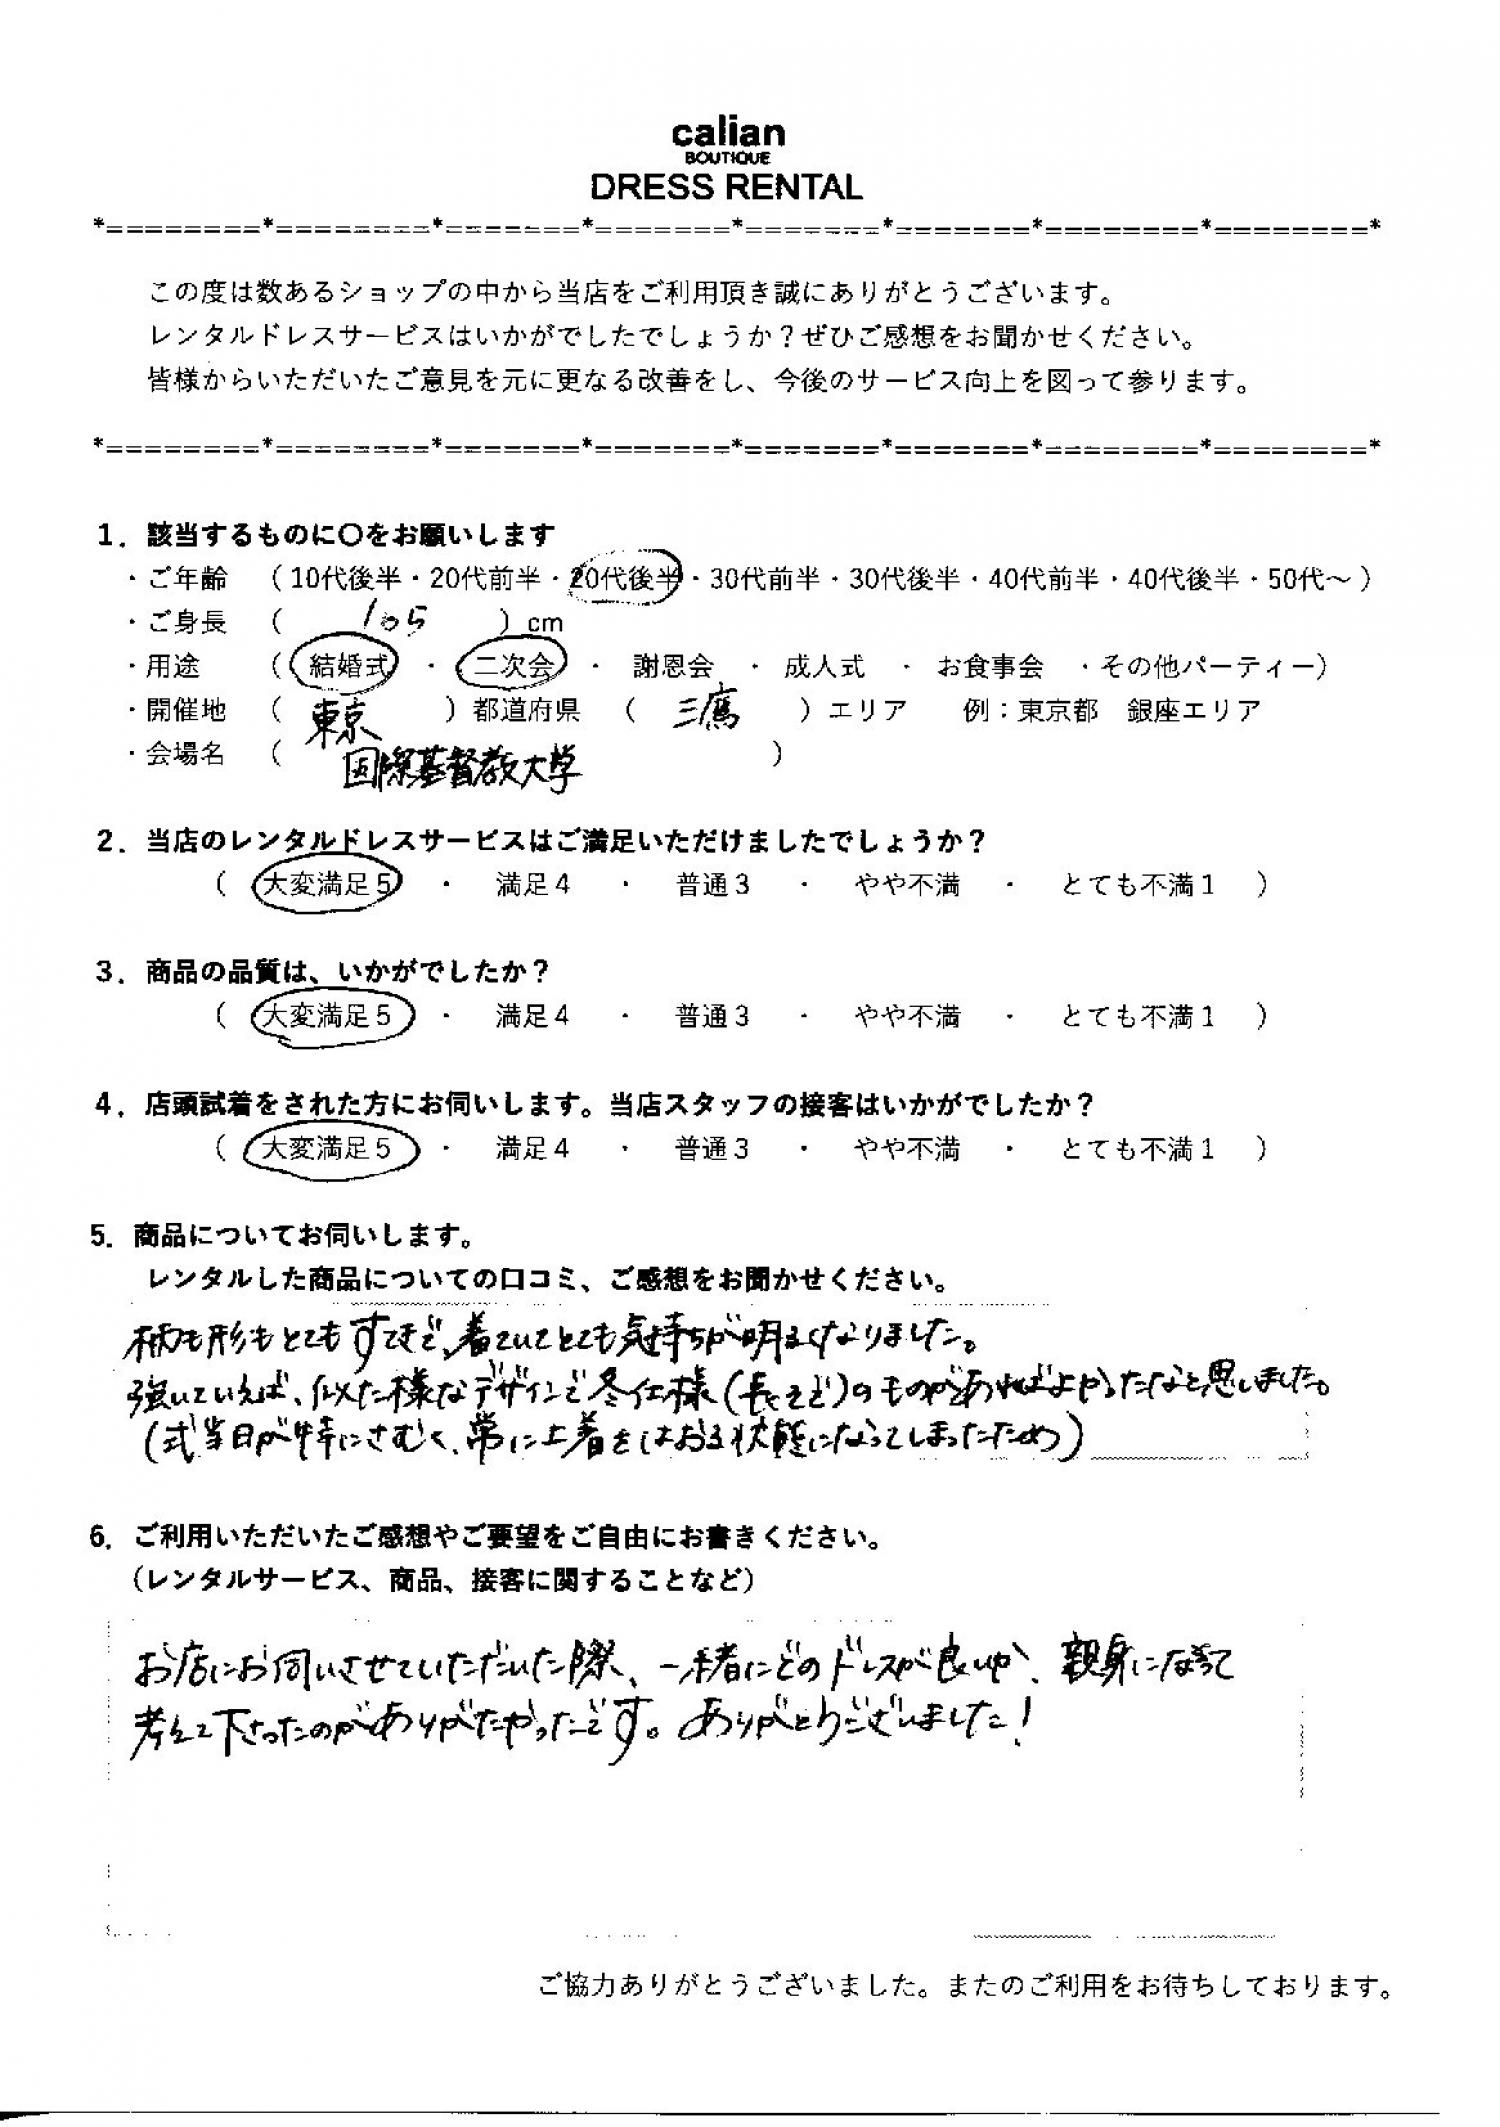 calian
BOUTIQUE
DRESS RENTAL
*========*========*=======*=======*=======*=======*========*========*
この度は数あるショップの中から当店をご利用頂き誠にありがとうございます。
レンタルドレスサービスはいかがでしたでしょうか？ぜひご感想をお聞かせください。
皆様からいただいたご意見を元に更なる改善をし、今後のサービス向上を図って参ります。
*========*========*=======*=======*=======*=======*========*========*
1．該当するものに〇をお願いします
・ご年齢 （10代後半・20代前半・20代後半・30代前半・30代後半・40代前半・40代後半・50代～）
・ご身長 （ 165 ）cm
・用途 （ 結婚式 ・ 二次会 ・ 謝恩会 ・ 成人式 ・ お食事会 ・その他パーティー）
・開催地 （ 東京 ）都道府県 （ 三鷹 ）エリア 例：東京都 銀座エリア
・会場名 （ 国際基督教大学 ）
2．当店のレンタルドレスサービスはご満足いただけましたでしょうか？
（ 大変満足5 ・ 満足4 ・ 普通3 ・ やや不満 ・ とても不満1 ）
3．商品の品質は、いかがでしたか？
（ 大変満足5 ・ 満足4 ・ 普通3 ・ やや不満 ・ とても不満1 ）
4．店頭試着をされた方にお伺いします。当店スタッフの接客はいかがでしたか？
（ 大変満足5 ・ 満足4 ・ 普通3 ・ やや不満 ・ とても不満1 ）
5．商品についてお伺いします。
レンタルした商品についての口コミ、ご感想をお聞かせください。
柄も形もとてもすてきで、着ていてとても気持ちが明るくなりました。
強いていえば、似た様なデザインで冬仕様（長そで）のものがあればよかったなと思いました。
（式当日が特にさむく、常に上着をはおる状態になってしまったため）
6．ご利用いただいたご感想やご要望をご自由にお書きください。
（レンタルサービス、商品、接客に関することなど）
お店にお伺いさせていただいた際、一緒にどのドレスが良いか、親身になって
考えて下さったのがありがたかったです。ありがとうございました！
ご協力ありがとうございました。またのご利用をお待ちしております。